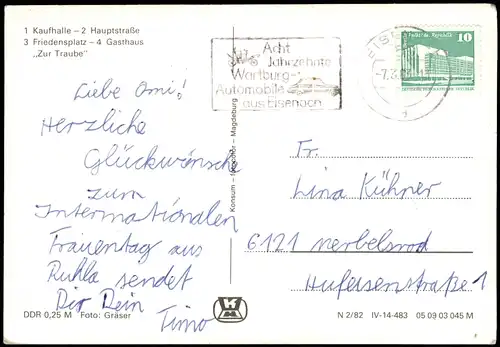 1 Kaufhalle – 2 Hauptstraße
3 Friedensplatz – 4 Gasthaus
„Zur Traube“
Acht
Jahrzehnte
Wartburg-
Automobile
aus Eisenach
10
Liebe Omi!
Herzliche
Glückwünsche
zum
Internationalen
Frauentag aus
Ruhla sendet
Dir Dein
Timo
Konsum – Magdeburg
Fr.
Lina Kühner
6121 Merbelsrod
Hufeisenstraße 1
DDR 0,25 M Foto: Gräser
N 2/82 IV-14-483 05 09 03 045 M